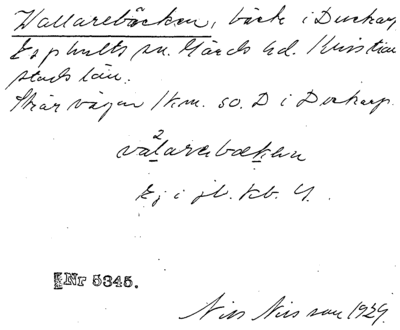 Wallarebäcken, bäck i Duckarp
Esphults sn. Gärds hd. Kristian
stads län.
Skär vägen 1 km. so. D i Duckarp.
va²larebæken
Ej i jb. kb. U.
Nr 5345.
Nils Nilsson 1929.